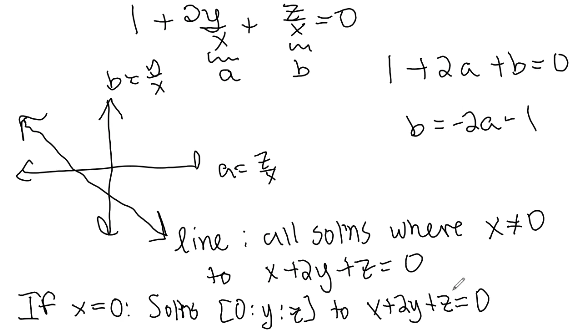 1 + 2y/x + z/x = 0
a b
1 + 2a + b = 0
b = -2a - 1
b = y/x
a = z/x
line : all solns where x ≠ 0
to x + 2y + z = 0
If x = 0 : Solns [0 : y : z] to x + 2y + z = 0